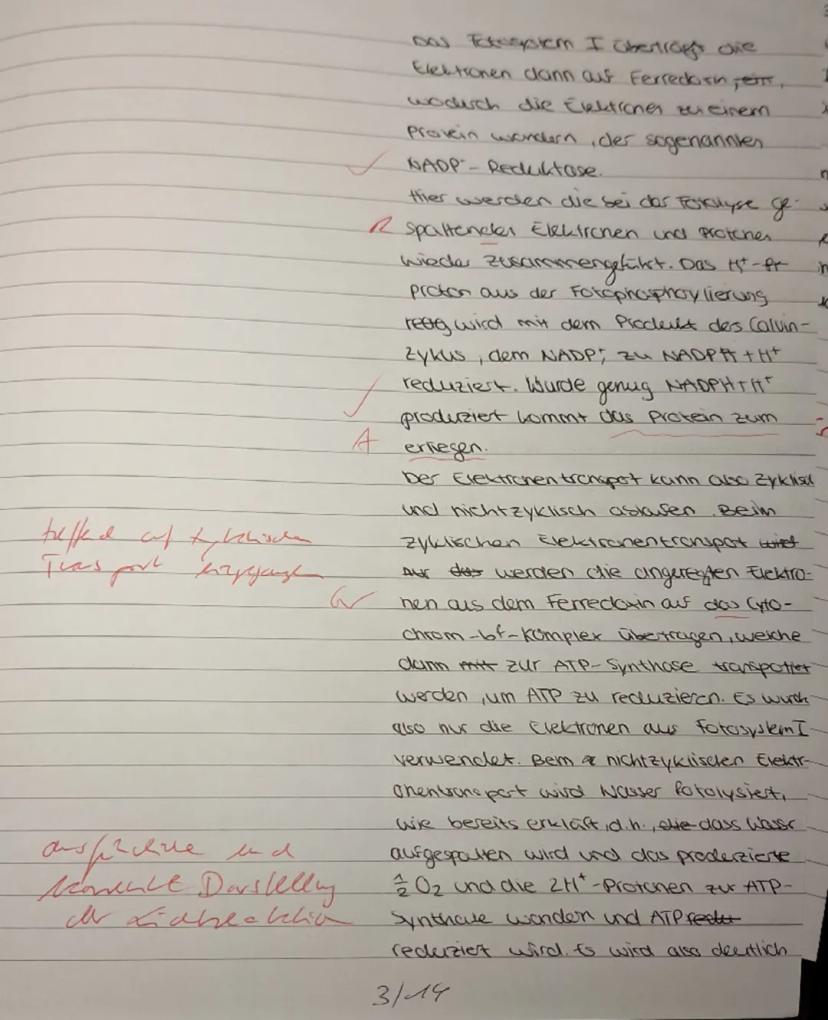 Das Fotosystem I überträgt die
Elektronen dann auf Ferredoxin,
wodurch die Elektronen zu einem
Protein wandern, der sogenannten
NADP⁺-Reduktase.
Hier werden die bei das Fotolyse ge-
R spaltenden Elektronen und Protonen
wieder zusammengeführt. Das H⁺-
Proton aus der Fotophosphorylierung
wird mit dem Produkt des Calvin-
Zykus, dem NADP⁺, zu NADPH + H⁺
reduziert. Wurde genug NADPH+H⁺
produziert kommt das Protein zum
A erliegen.
Der Elektronentransport kann also zyklisch
und nichtzyklisch ablaufen. Beim
treffend auf zyklischen
zyklischen Elektronentransport wird
Transport eingegangen
nur das werden die angeregten Elektro-
nen aus dem Ferredoxin auf das Cyto-
chrom-bf-Komplex übertragen, welche
dann mit zur ATP-Synthase transportiert
werden, um ATP zu reduzieren. Es wurde
also nur die Elektronen aus Fotosystem I
verwendet. Beim nichtzyklischen Elektr-
onentransport wird Wasser fotolysiert,
wie bereits erklärt, d.h., dass Wasser
ausführliche und
aufgespalten wird und das produzierte
korrekte Darstellung
½ O₂ und die 2H⁺-Protonen zur ATP-
der Lichtreaktion
Synthase wandern und ATP
reduziert wird. Es wird also deutlich
3/14